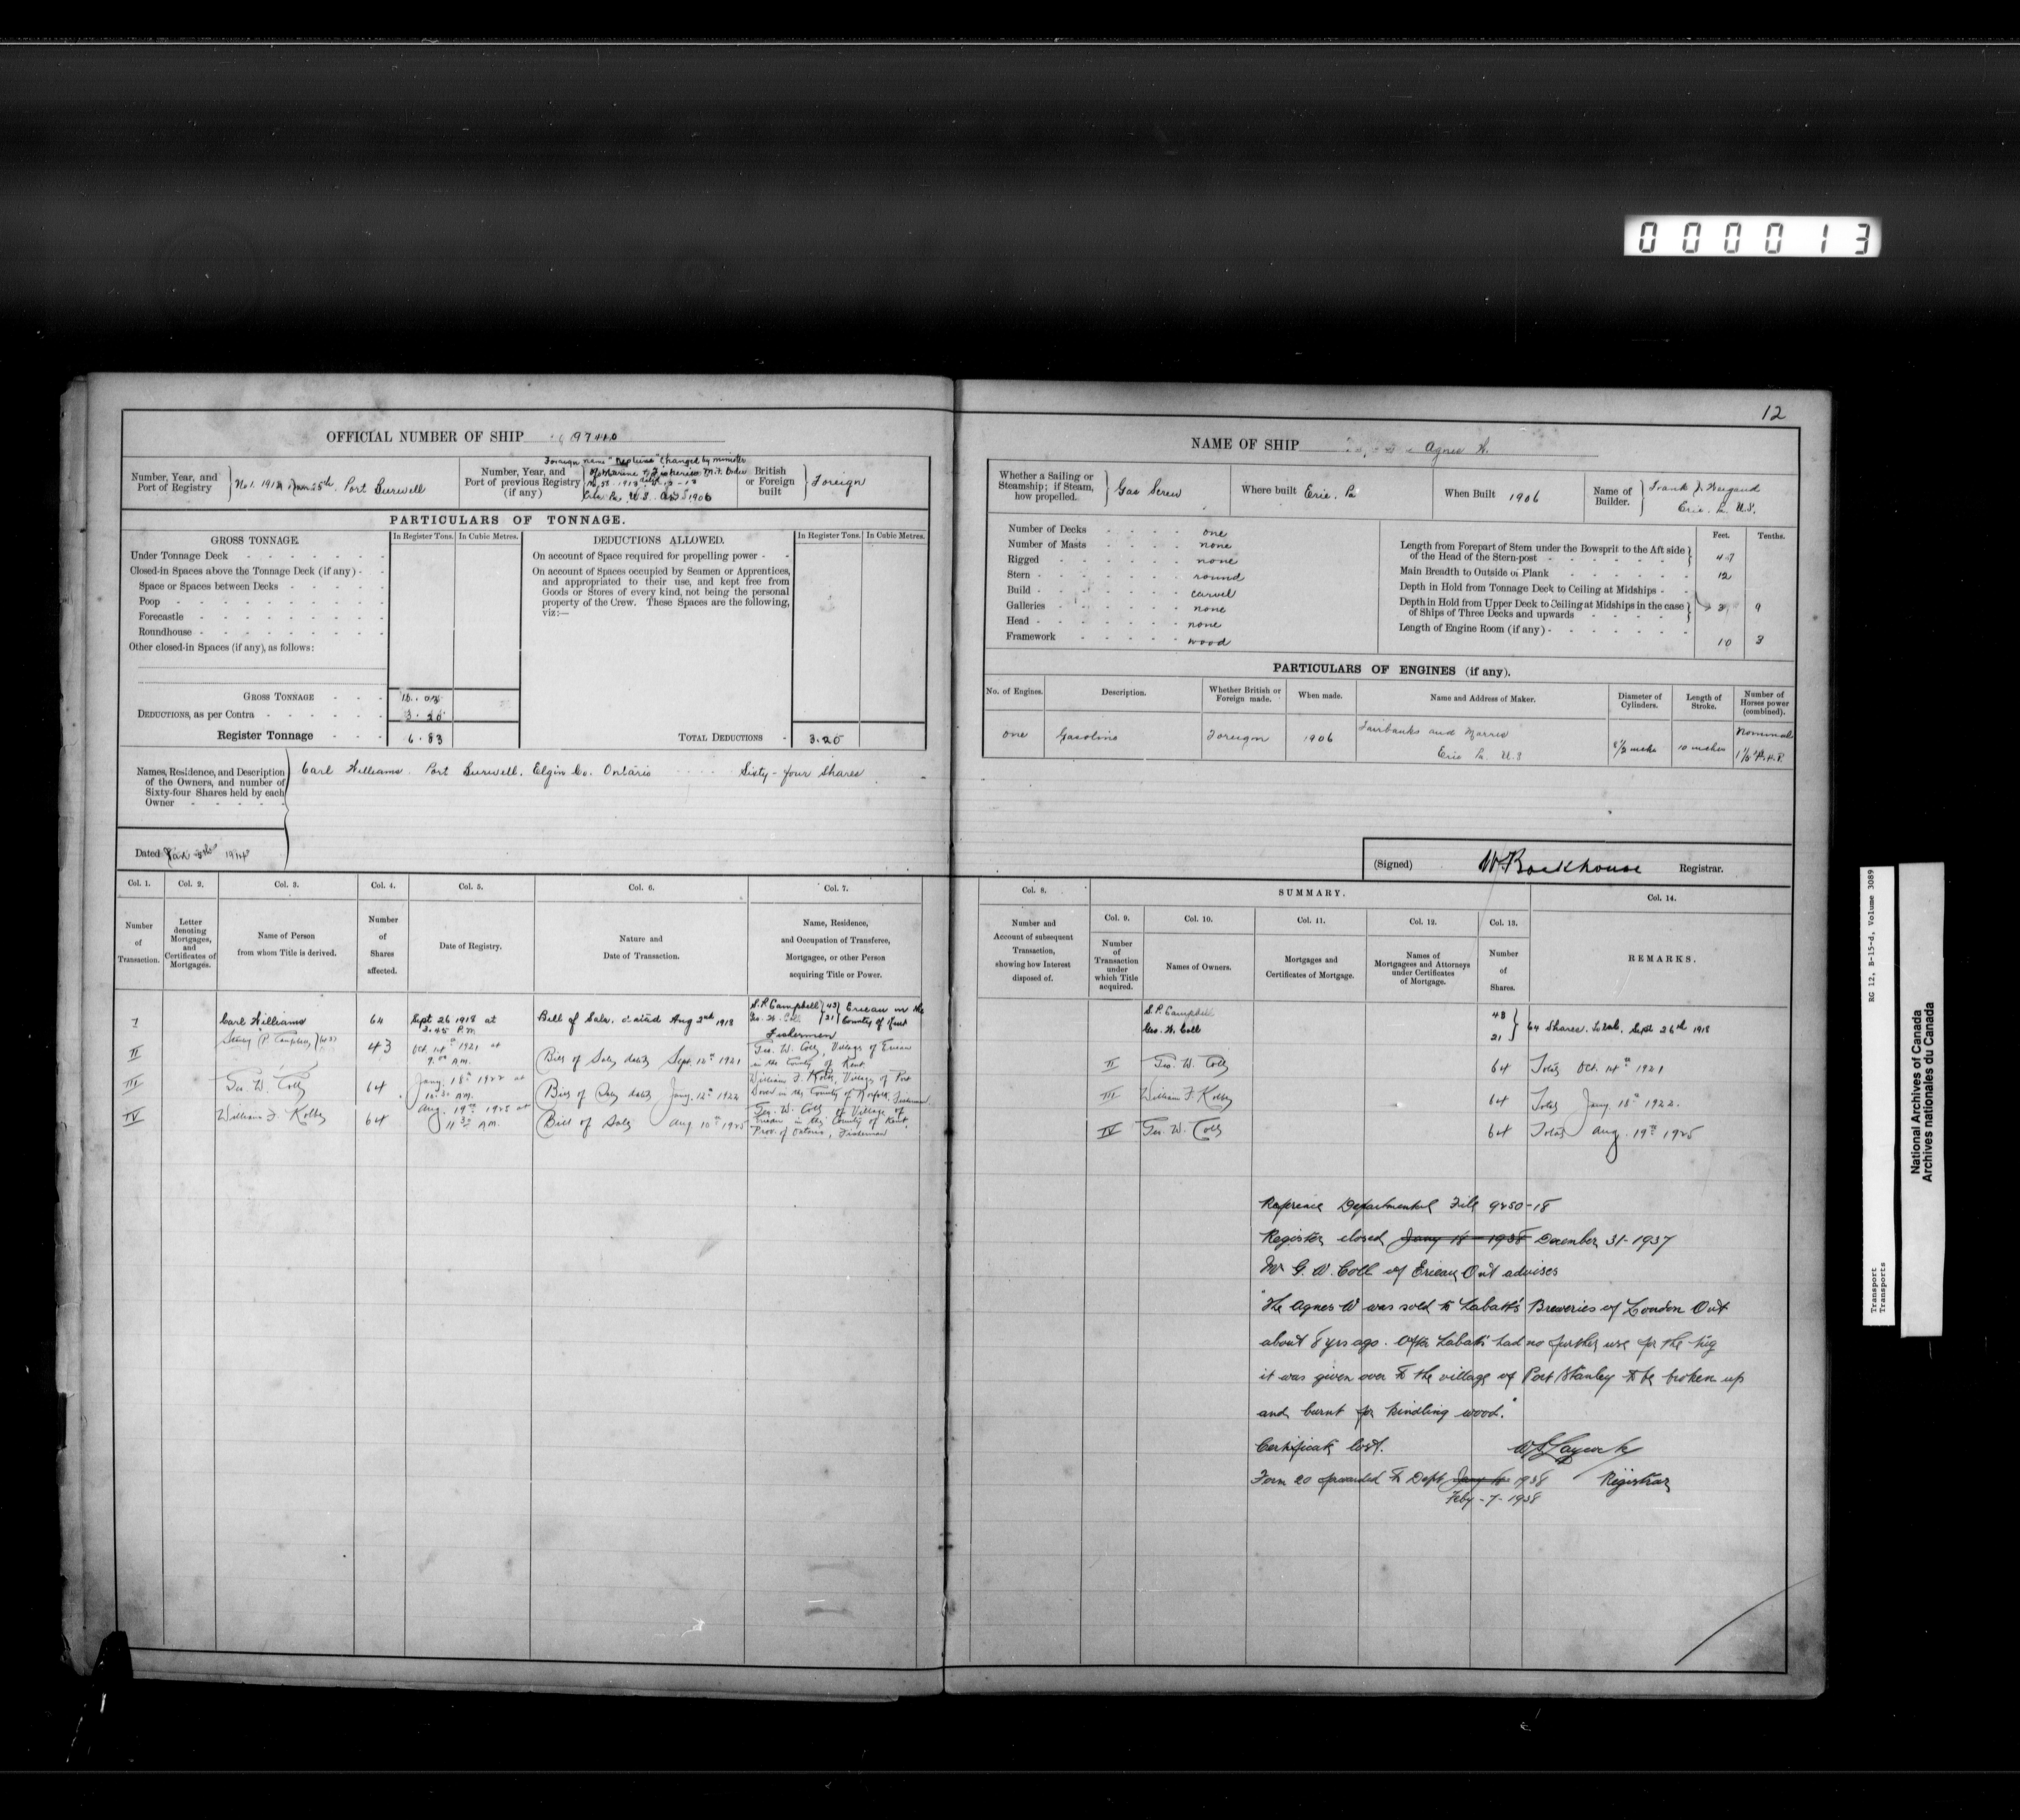 0 0 0 0 1 3
12
OFFICIAL NUMBER OF SHIP
NAME OF SHIP Agnes W.
Number, Year, and Port of Registry } No 1. 1914 25th. Port Burwell
Number, Year, and Port of previous Registry (if any)
Foreign name "Neptune" Changed by minister
1906
British or Foreign built } Foreign
Whether a Sailing or Steamship; if Steam, how propelled. } Gas Screw
Where built Erie. Pa
When Built 1906
Name of Builder. } Frank J. Weigand
Erie. Pa. U.S.
PARTICULARS OF TONNAGE.
GROSS TONNAGE.
In Register Tons. In Cubic Metres.
DEDUCTIONS ALLOWED.
In Register Tons. In Cubic Metres.
Under Tonnage Deck
Closed-in Spaces above the Tonnage Deck (if any)
Space or Spaces between Decks
Poop
Forecastle
Roundhouse
Other closed-in Spaces (if any), as follows:
GROSS TONNAGE
DEDUCTIONS, as per Contra
Register Tonnage 6.83
On account of Space required for propelling power
On account of Spaces occupied by Seamen or Apprentices,
and appropriated to their use, and kept free from
Goods or Stores of every kind, not being the personal
property of the Crew. These Spaces are the following,
viz:—
TOTAL DEDUCTIONS 3.20
Number of Decks one
Number of Masts none
Rigged none
Stern round
Build carvel
Galleries none
Head none
Framework wood
Feet. Tenths.
Length from Forepart of Stem under the Bowsprit to the Aft side
of the Head of the Stern-post 47
Main Breadth to Outside of Plank 12
Depth in Hold from Tonnage Deck to Ceiling at Midships
Depth in Hold from Upper Deck to Ceiling at Midships in the case
of Ships of Three Decks and upwards 3 9
Length of Engine Room (if any) 10 3
PARTICULARS OF ENGINES (if any).
No. of Engines. Description. Whether British or Foreign made. When made. Name and Address of Maker. Diameter of Cylinders. Length of Stroke. Number of Horses power (combined).
one Gasoline Foreign 1906 Fairbanks and Morris
Erie Pa. U.S 10 inches Nominal
Names, Residence, and Description
of the Owners, and number of
Sixty-four Shares held by each
Owner
Carl Williams. Port Burwell, Elgin Co. Ontario Sixty-four Shares
Dated
(Signed) W Backhouse Registrar.
Col. 1. Col. 2. Col. 3. Col. 4. Col. 5. Col. 6. Col. 7. Col. 8. SUMMARY. Col. 14.
Col. 9. Col. 10. Col. 11. Col. 12. Col. 13.
Number of Transaction.
Letter denoting Mortgages, and Certificates of Mortgages.
Name of Person from whom Title is derived.
Number of Shares affected.
Date of Registry.
Nature and Date of Transaction.
Name, Residence, and Occupation of Transferee, Mortgagee, or other Person acquiring Title or Power.
Number and Account of subsequent Transaction, showing how Interest disposed of.
Number of Transaction under which Title acquired.
Names of Owners.
Mortgages and Certificates of Mortgage.
Names of Mortgagees and Attorneys under Certificates of Mortgage.
Number of Shares.
REMARKS.
I Carl Williams 64 Sept 26 1918 at 3.45 P.M. Bill of Sale. dated Aug 3rd 1918
S.P. Campbell } 43 } Erieau in the
Geo. W. Coll } 21 } County of Kent
Fishermen
S.P. Campbell 43
Geo. W. Coll 21 } 64 Shares. Total. Sept 26th 1918
II 43 Oct. 14th 1921 at 9.00 AM. Bill of Sale dated Sept. 12th 1921
Geo. W. Coll, Village of Erieau
in the County of Kent.
II Geo. W. Coll 64 Total Oct. 14th 1921
III Geo. W. Coll 64 Jany. 18th 1922 at AM. Bill of Sale dated Jany. 12th 1922
William F. Kolbe, Village of Port
Dover in the County of Norfolk, Fisherman
III William F. Kolbe 64 Total Jany 18th 1922.
IV William F. Kolbe 64 Aug. 19th 1925 at 11.30 AM. Bill of Sale Aug. 10th 1925
Geo. W. Coll of Village of
Erieau in the County of Kent,
Prov. of Ontario, Fisherman
IV Geo. W. Coll 64 Total Aug. 19th 1925
Reference Departmental File 9250-18
Register closed Jany 18-1938 December 31-1937
Mr G. W. Coll of Erieau Ont advises
"The Agnes W was sold to Labatt's Breweries of London Ont
about 8 yrs ago. After Labatts had no further use for the tug
it was given over to the village of Port Stanley to be broken up
and burnt for kindling wood."
Certificate lost.
Registrar
Form 20 forwarded to Dept 1938
Feby-7-1938
RG 12, B-15-d, Volume 3089
Transport
Transports
National Archives of Canada
Archives nationales du Canada